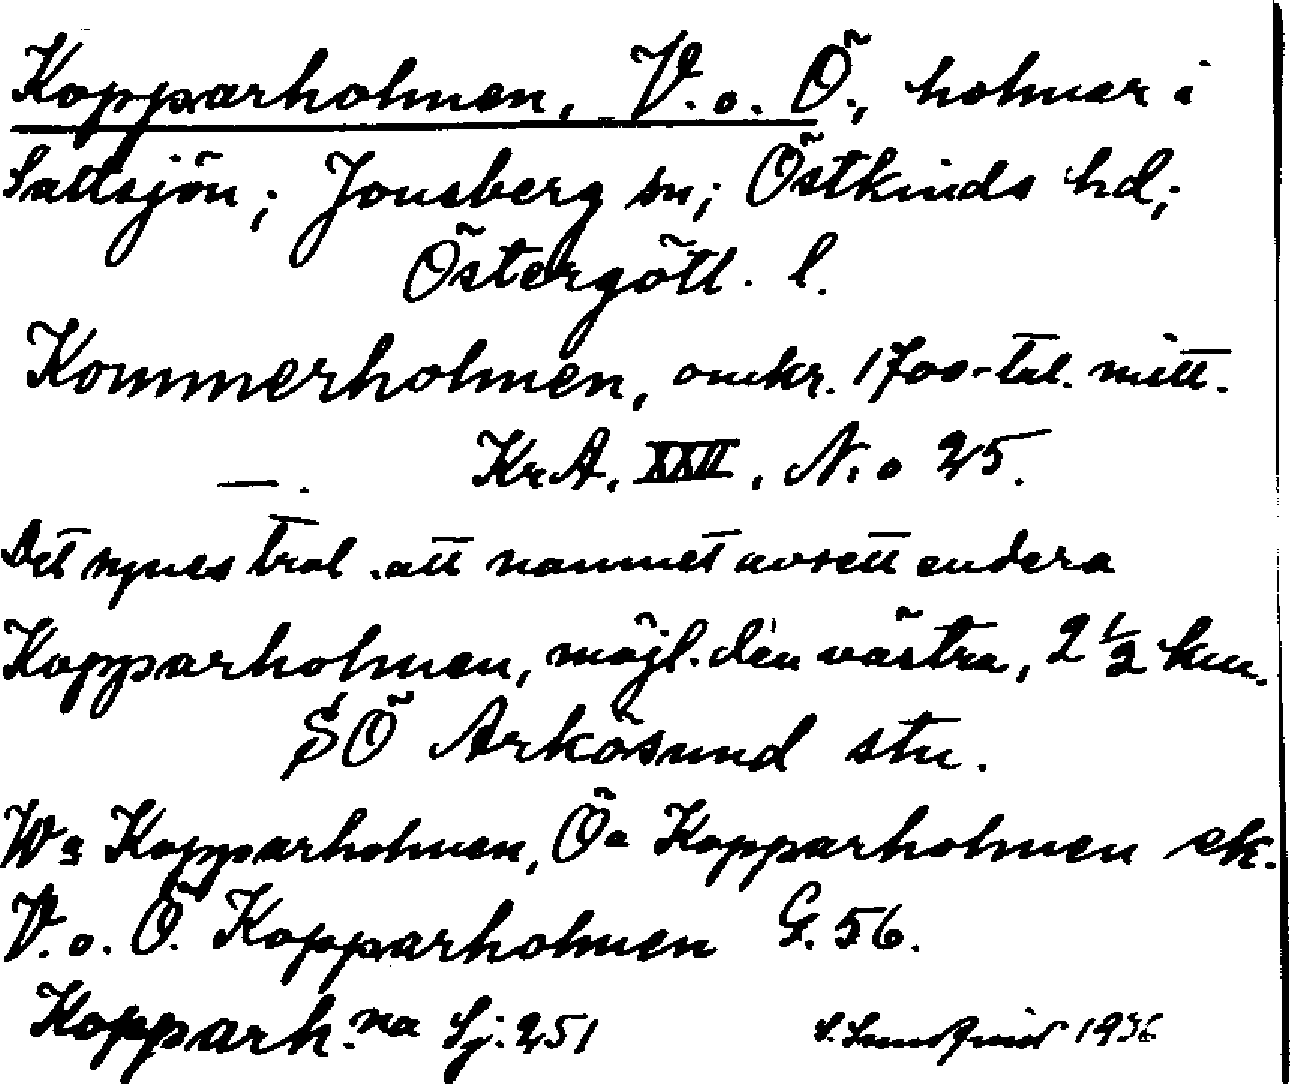 Kopparholmen, V. o. Ö., holmar i
Saltsjön; Jonsberg sn; Östkinds hd;
Östergötl. l.
Kommerholmen, omkr. 1700-tal. mitt.
—. KrA. XXII, N:o 25.
Det synes trol. att namnet avsett endera
Kopparholmen, möjl. den västra, 2 ½ km.
SÖ Arkösund stn.
Wa Kopparholmen, Öa Kopparholmen ek.
V. o. Ö. Kopparholmen G. 56.
Kopparh:na Sj. 251 1936